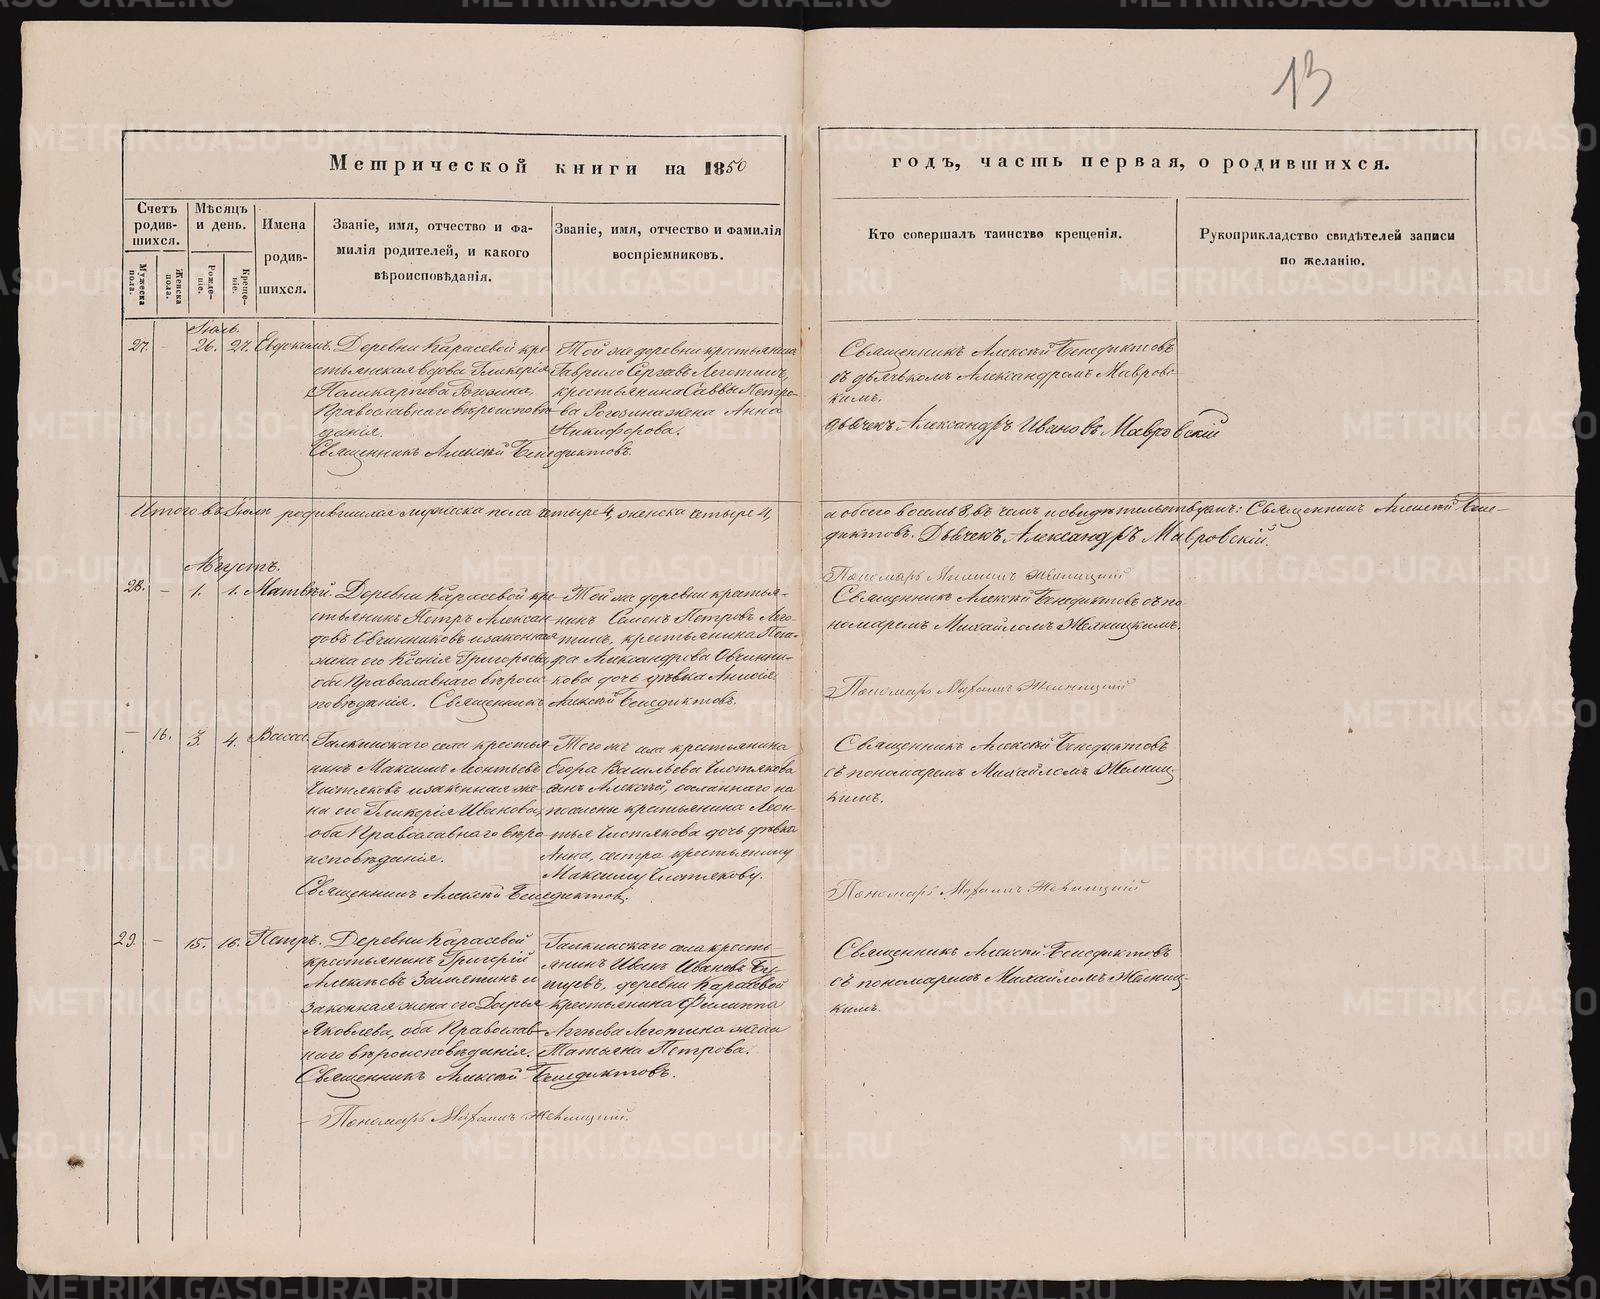 13
Метрической книги на 1850
годъ, часть первая, о родившихся.
Счетъ родив-шихся.
Мужеска пола.
Женска пола.
Мѣсяцъ и день.
Рожде-ніе.
Креще-ніе.
Имена родив-шихся.
Званіе, имя, отчество и фа-
милія родителей, и какого
вѣроисповѣданія.
Званіе, имя, отчество и фамилія
воспріемниковъ.
Кто совершалъ таинство крещенія.
Рукоприкладство свидѣтелей записи
по желанію.
Іюль.
27. - 26. 27. Евдокимъ.
Деревни Карасевой кре-
стьянская вдова Гликерія
Поликарпова Рогозина,
Православнаго вѣроисповѣ-
данія.
Священникъ Алексѣй Бенедиктовъ.
Той же деревни крестьянинъ
Гаврило Сергѣевъ Леготинъ,
крестьянина Саввы Петро-
ва Рогозина жена Анна
Никифорова.
Священникъ Алексѣй Бенедиктовъ
съ дьячькомъ Александромъ Мавровс-
кимъ.
Дьячекъ Александръ Ивановъ Мавровскій
Итого въ Іюлѣ родившихся мужеска пола четыре 4, женска четыре 4,
а обоего восемь 8, въ чемъ и свидѣтельствуемъ: Священникъ Алексѣй Бене-
диктовъ. Дьячекъ Александръ Мавровскій.
Пономарь Михаилъ Желницкій
Августъ.
28. - 1. 1. Матвѣй.
Деревни Карасевой кре-
стьянинъ Петръ Алексан-
дровъ Овчинниковъ и законная
жена его Ксенія Григорьева,
оба Православнаго вѣроис-
повѣданія. Священникъ Алексѣй Бенедиктовъ.
Той же деревни крестья-
нинъ Семенъ Петровъ Лего-
тинъ, крестьянина Пет-
ра Александрова Овчинни-
кова дочь дѣвка Анисія
Священникъ Алексѣй Бенедиктовъ съ по-
номаремъ Михайломъ Желницкимъ.
Пономарь Михаилъ Желницкій
- 16. 3. 4. Васса.
Галкинскаго села крестья-
нинъ Максимъ Леонтьевъ
Чистяковъ и законная же-
на его Гликерія Иванова,
оба Православнаго вѣро-
исповѣданія.
Священникъ Алексѣй Бенедиктовъ.
Того жъ села крестьянина
Егора Васильева Чистякова
сынъ Алексѣй, сосланнаго на
поселеніе крестьянина Леон-
тья Чистякова дочь дѣвка
Анна, сестра крестьянину
Максиму Чистякову.
Священникъ Алексѣй Бенедиктовъ
съ пономаремъ Михайломъ Желниц-
кимъ.
Пономарь Михаилъ Желницкій
29. - 15. 16. Петръ.
Деревни Карасевой
крестьянинъ Григорій
Алексѣевъ Замятинъ и
законная жена его Дарья
Яковлева, оба Православ-
наго вѣроисповѣданія.
Священникъ Алексѣй Бенедиктовъ.
Пономарь Михаилъ Желницкій.
Галкинскаго села кресть-
янинъ Иванъ Ивановъ
деревни Карасевой
крестьянина Филиппа
Аггѣева Леготина жена
Татьяна Петрова.
Священникъ Алексѣй Бенедиктовъ
съ пономаремъ Михайломъ Желниц-
кимъ.
METRIKI.GASO-URAL.RU